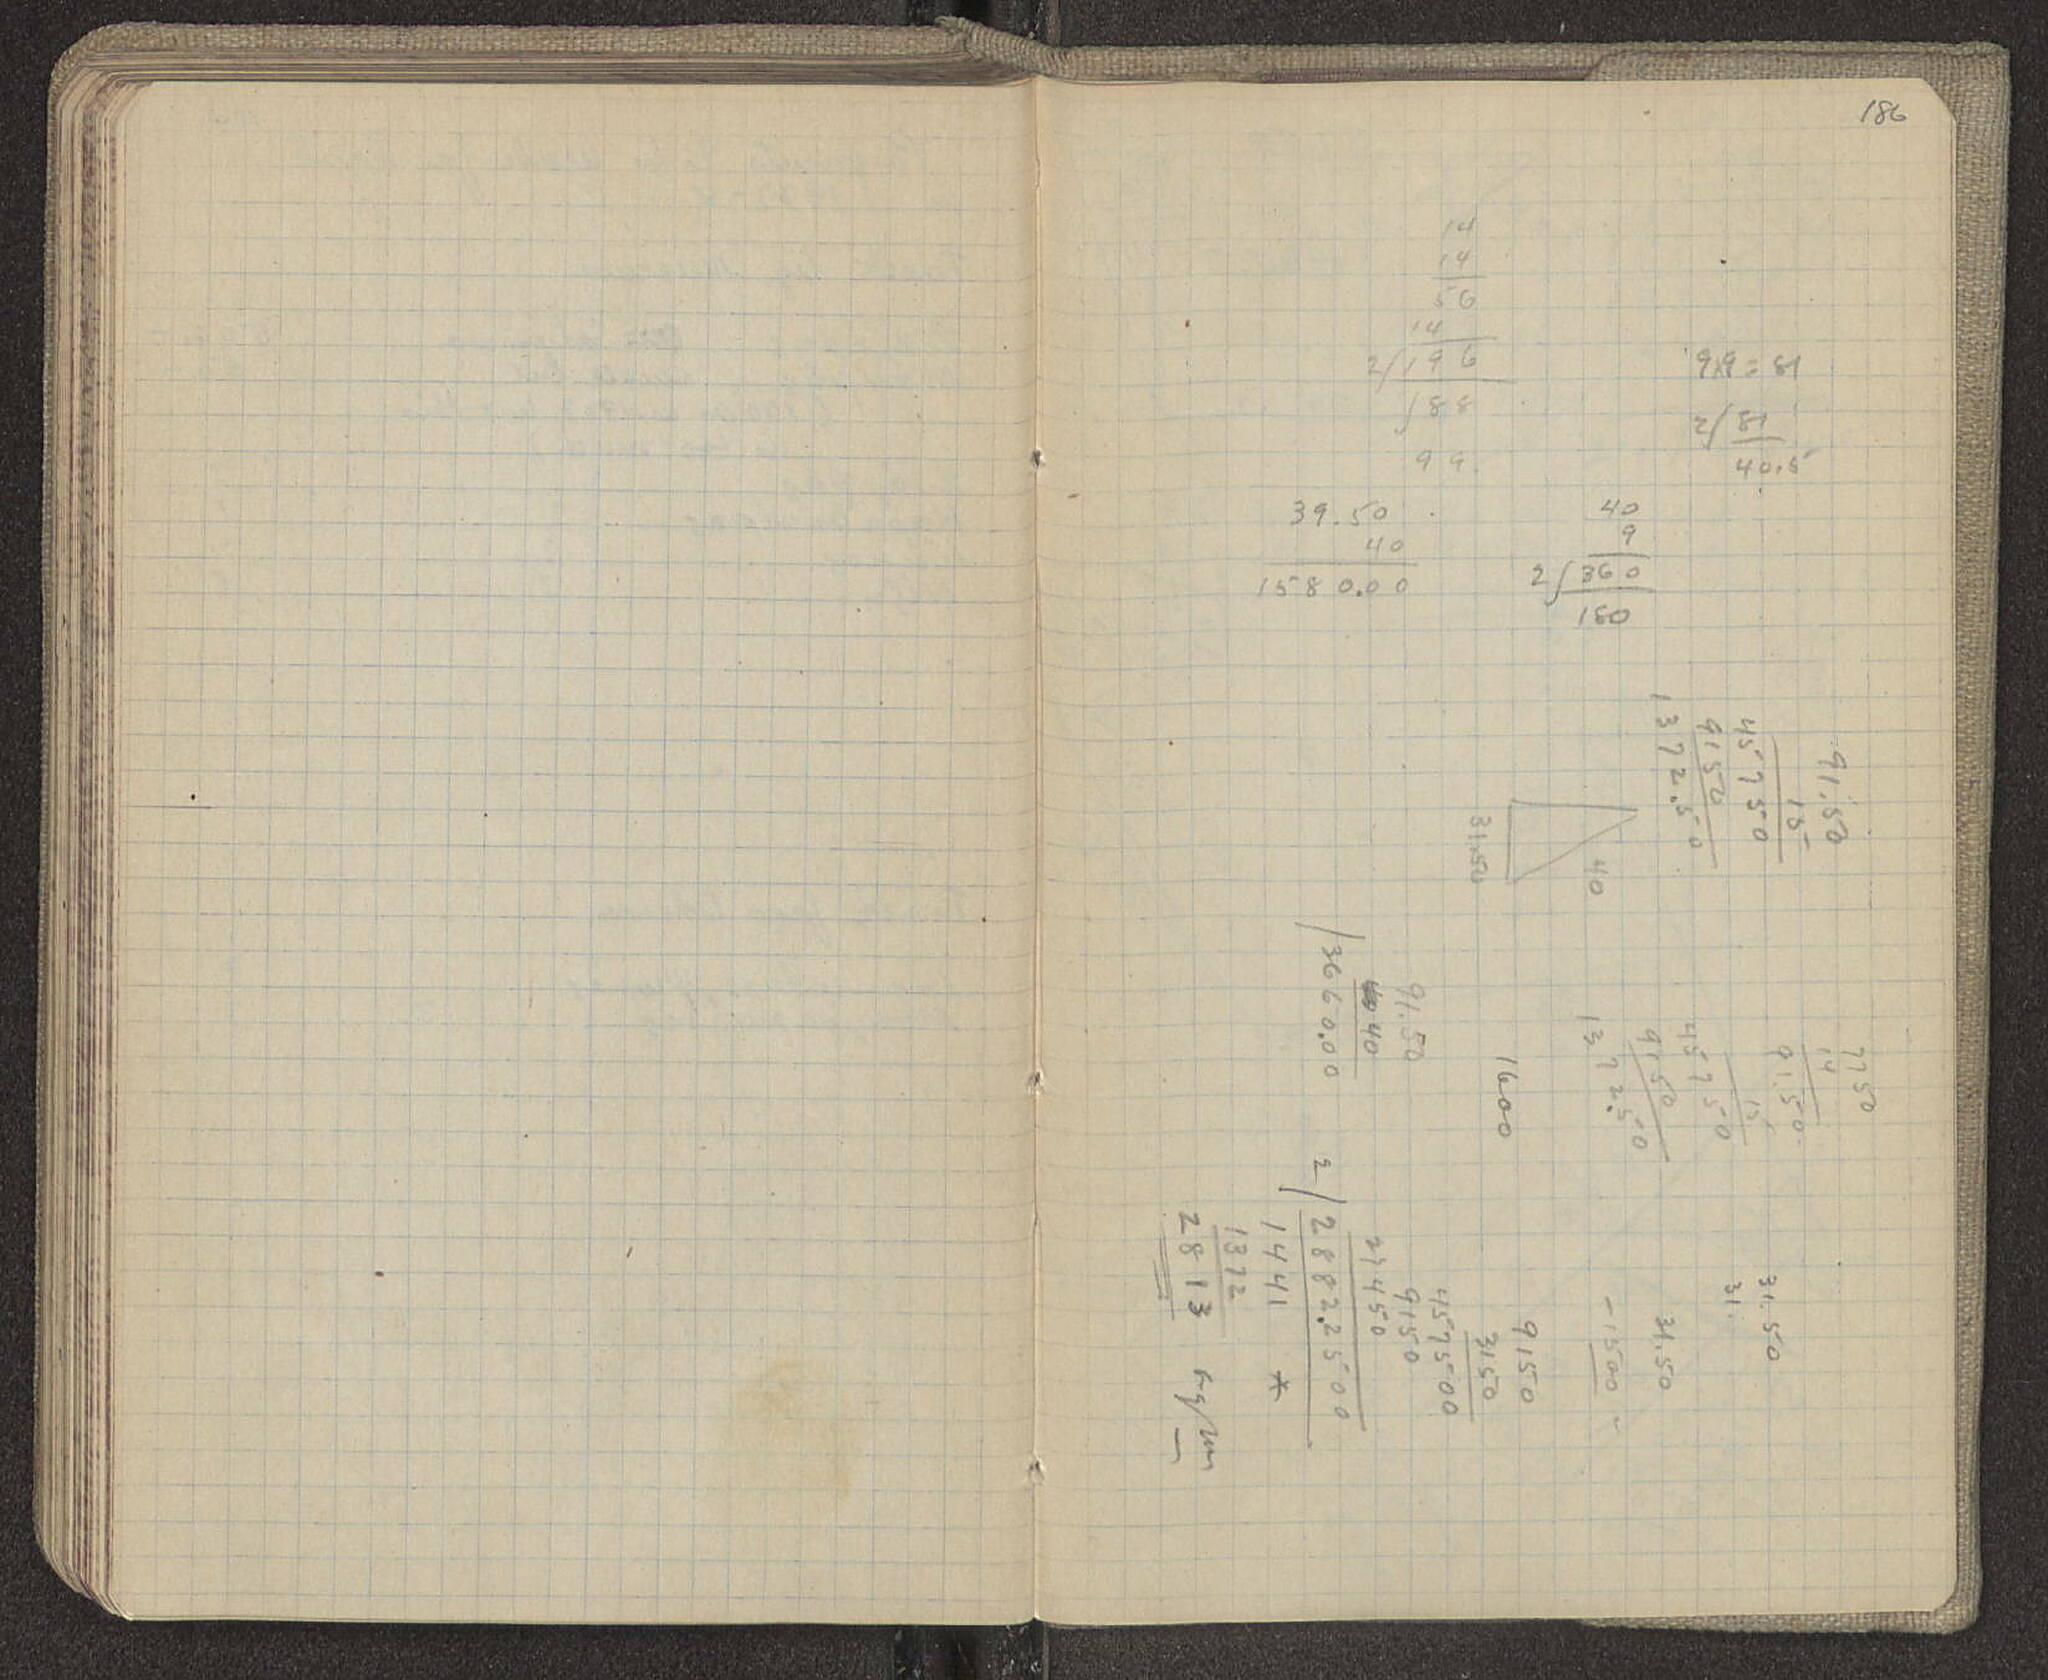 186
14
14
56
14
2/196
188
99.
9x9=81
2/81
40.5
39.50
40
1580.00
40
9
2/360
180
91.50
15
45750
9150
1372.50
40
31.50
7750
14
91.50
15
45750
9150
1372.50
91.50
40
/3660.00
1600
31.50
31.
31.50
-1500-
9150
3150
457500
9150
27450
2/2882.2500
1441 *
1372
2813